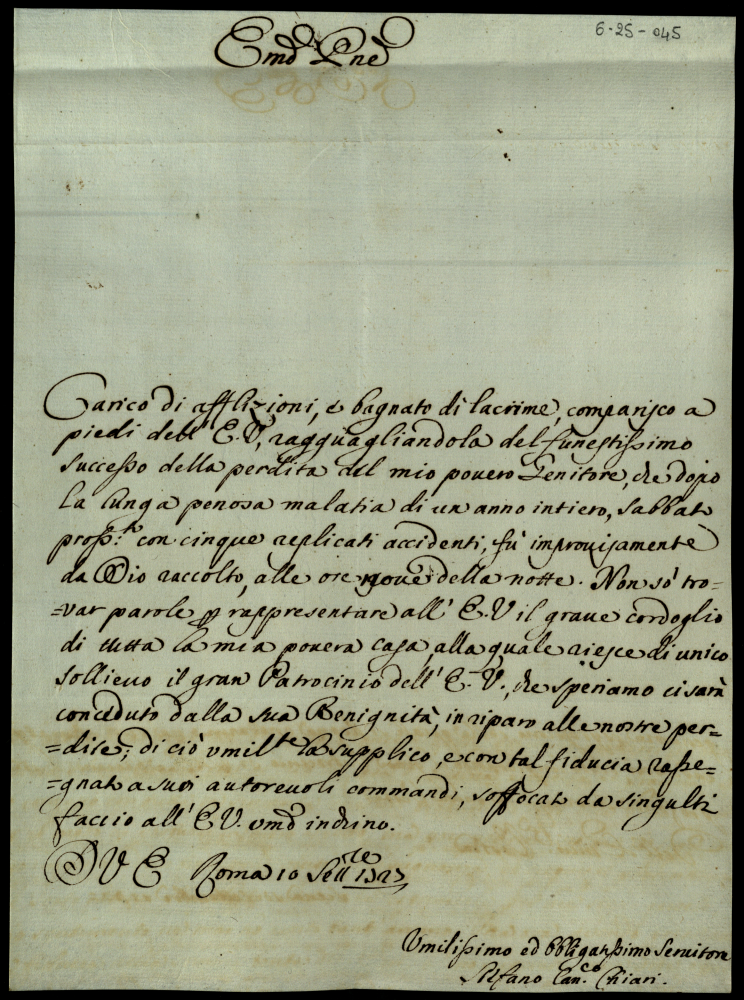 6-25-045
Emo Pne
Carico di afflizioni, e bagnato di lacrime, comparisco a
piedi dell' E.V., ragguagliandola del funestissimo
successo della perdita del mio povero Genitore, che dopo
la lunga penosa malatia di un anno intiero, Sabbato
pross.to con cinque replicati accidenti, fù improvisamente
da Dio raccolto, alle ore nove della notte. Non sò tro=
=var parole p rappresentare all' E.V il grave cordoglio
di tutta la mia povera casa, alla quale riesce di unico
sollievo il gran Patrocinio dell' E.V., che speriamo ci sarà
conceduto dalla sua Benignità, in riparo alle nostre per=
=dite; di ciò vmil.te la supplico, e con tal fiducia rasse=
=gnato a suoi autorevoli commandi, soffocato da singulti
faccio all' E.V. vmo inchino.
D V E Roma 10 Sett.re
Vmilissimo ed Obbligatissimo Servitore
Can.co Chiari.